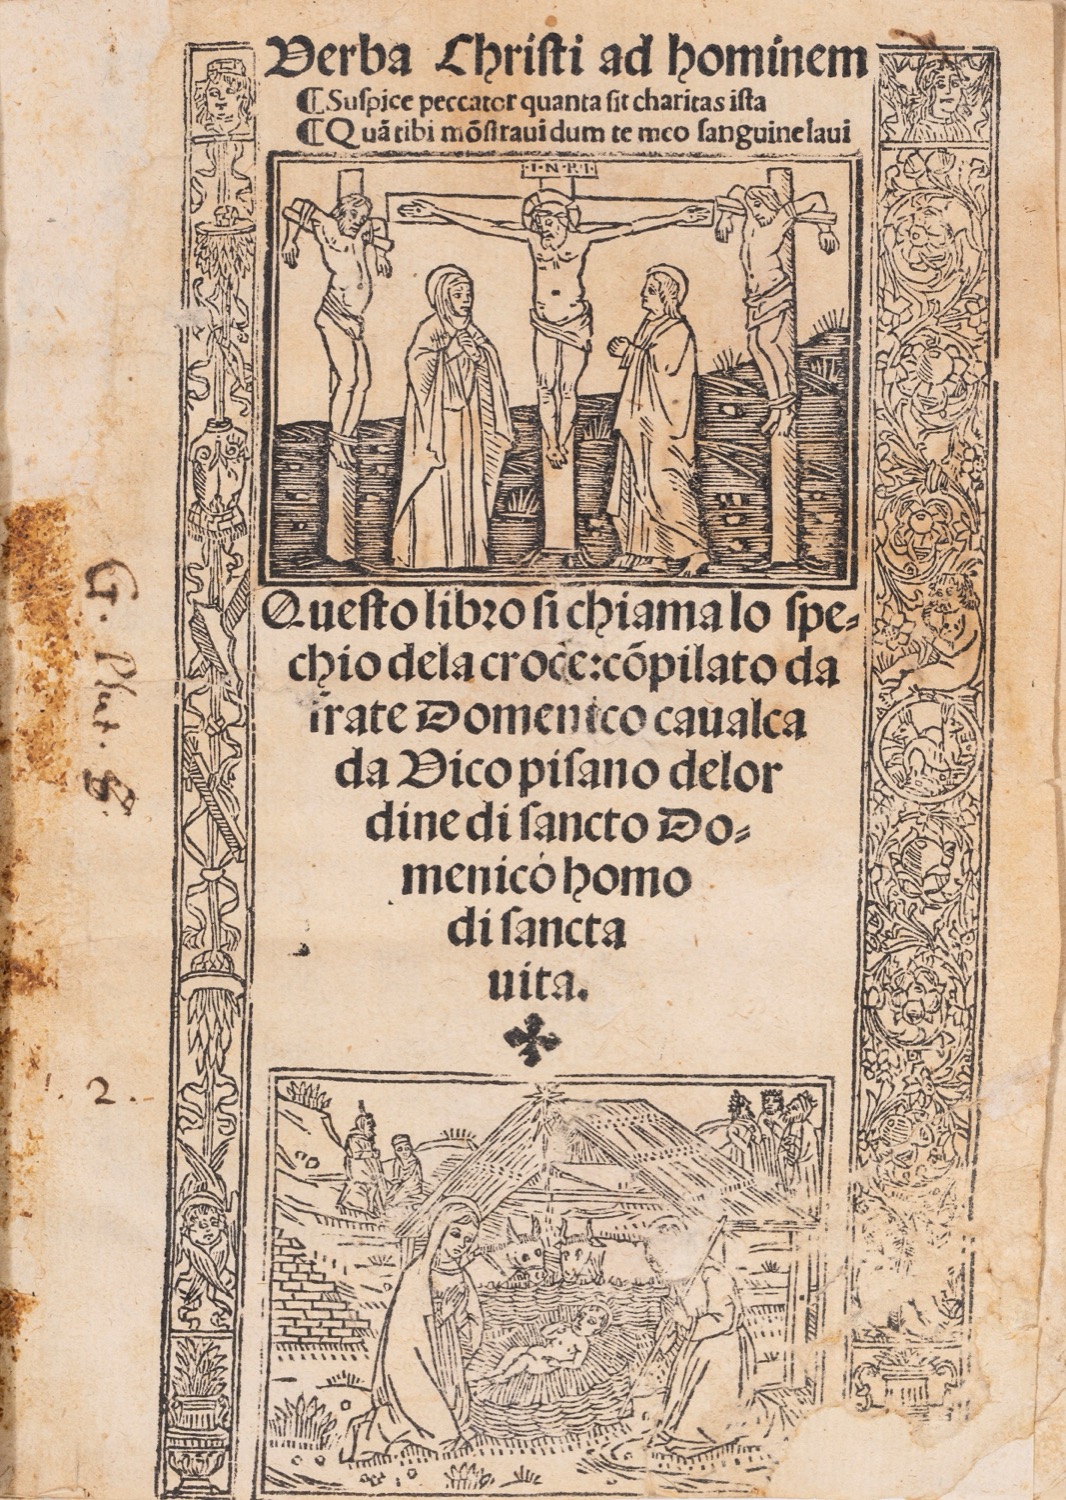 Verba Christi ad hominem
¶ Suspice peccator quanta sit charitas ista
¶ Quā tibi mōstraui dum te meo sanguine laui
·I·N·R·I·
Questo libro si chiama lo spe-
chio dela croce: cōpilato da
frate Domenico caualca
da Vico pisano delor
dine di sancto Do-
menico homo
di sancta
uita.
G. Plut. 8.
2.